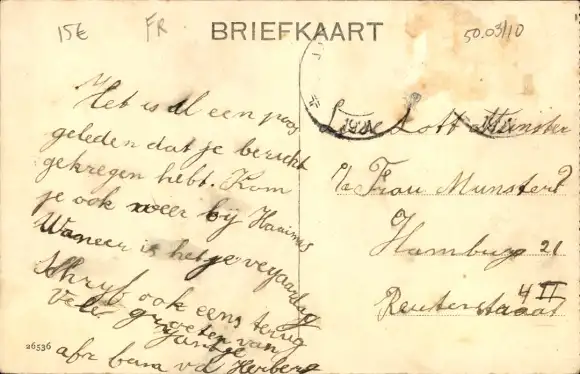 15€ FR 50.03/10
BRIEFKAART
Het is al een poos
geleden dat je bericht
gekregen hebt. Kom
je ook weer bij
Waneer is het je verjaardag
Schrijf ook eens terug
Vele groeten van
Jantje
afz
v d Herberg
26536
Munster
p/a Frau Munster
Hamburg 21
Reuterstraat
4 II